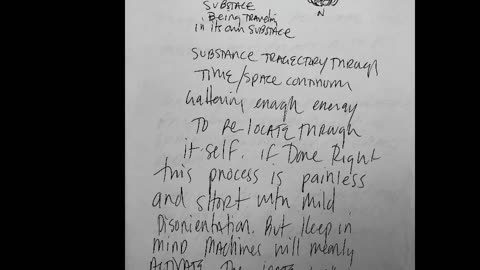 SUBSTACE
N
i Being TRAVELING
in ITS own SUBSTACE
SUBSTANCE TRAJECTORY THROUGH
TIME/SPACE CONTINUUM
GATTERING ENOUGH ENERGY
TO RELOCATE THROUGH
IT SELF. IF DONE RIGHT
THIS PROCESS IS PAINLESS
AND SHORT WITH MILD
DISORIENTATION. BUT KEEP IN
MIND MACHINES WILL MEANLY
ACTIVATE THE